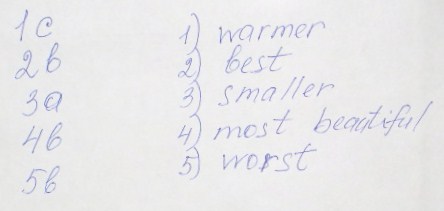 1c
2b
3a
4b
5b
1) warmer
2) best
3) smaller
4) most beautiful
5) worst